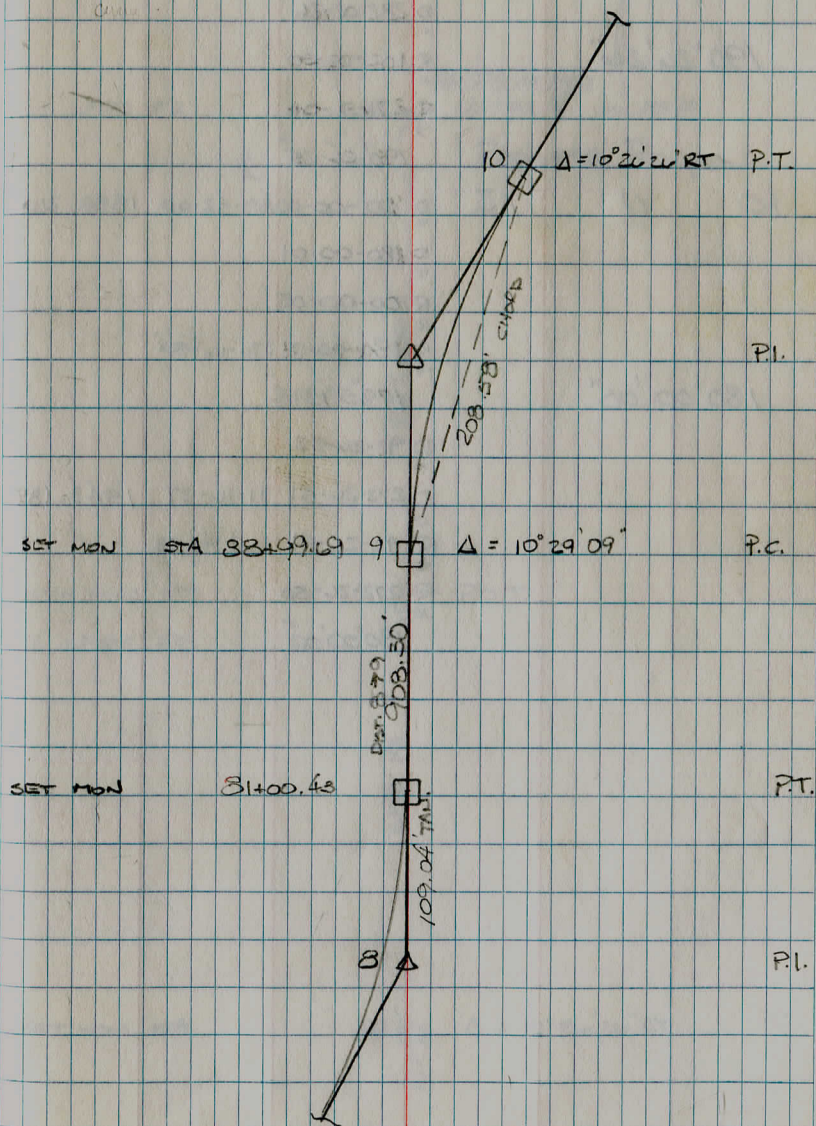 10 Δ = 10°26'26" RT P.T.
208.58' CHORD
P.I.
SET MON STA 88+99.69 9 Δ = 10°29'09" P.C.
DIST. 8 → 9
908.30'
SET MON 81+00.43 P.T.
109.04' TAN.
8 P.I.